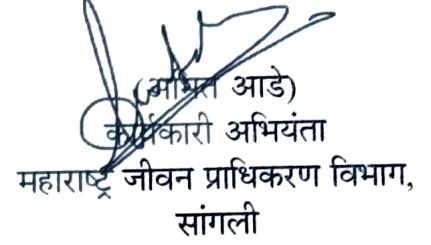 (अमित आडे)
कार्यकारी अभियंता
महाराष्ट्र जीवन प्राधिकरण विभाग,
सांगली